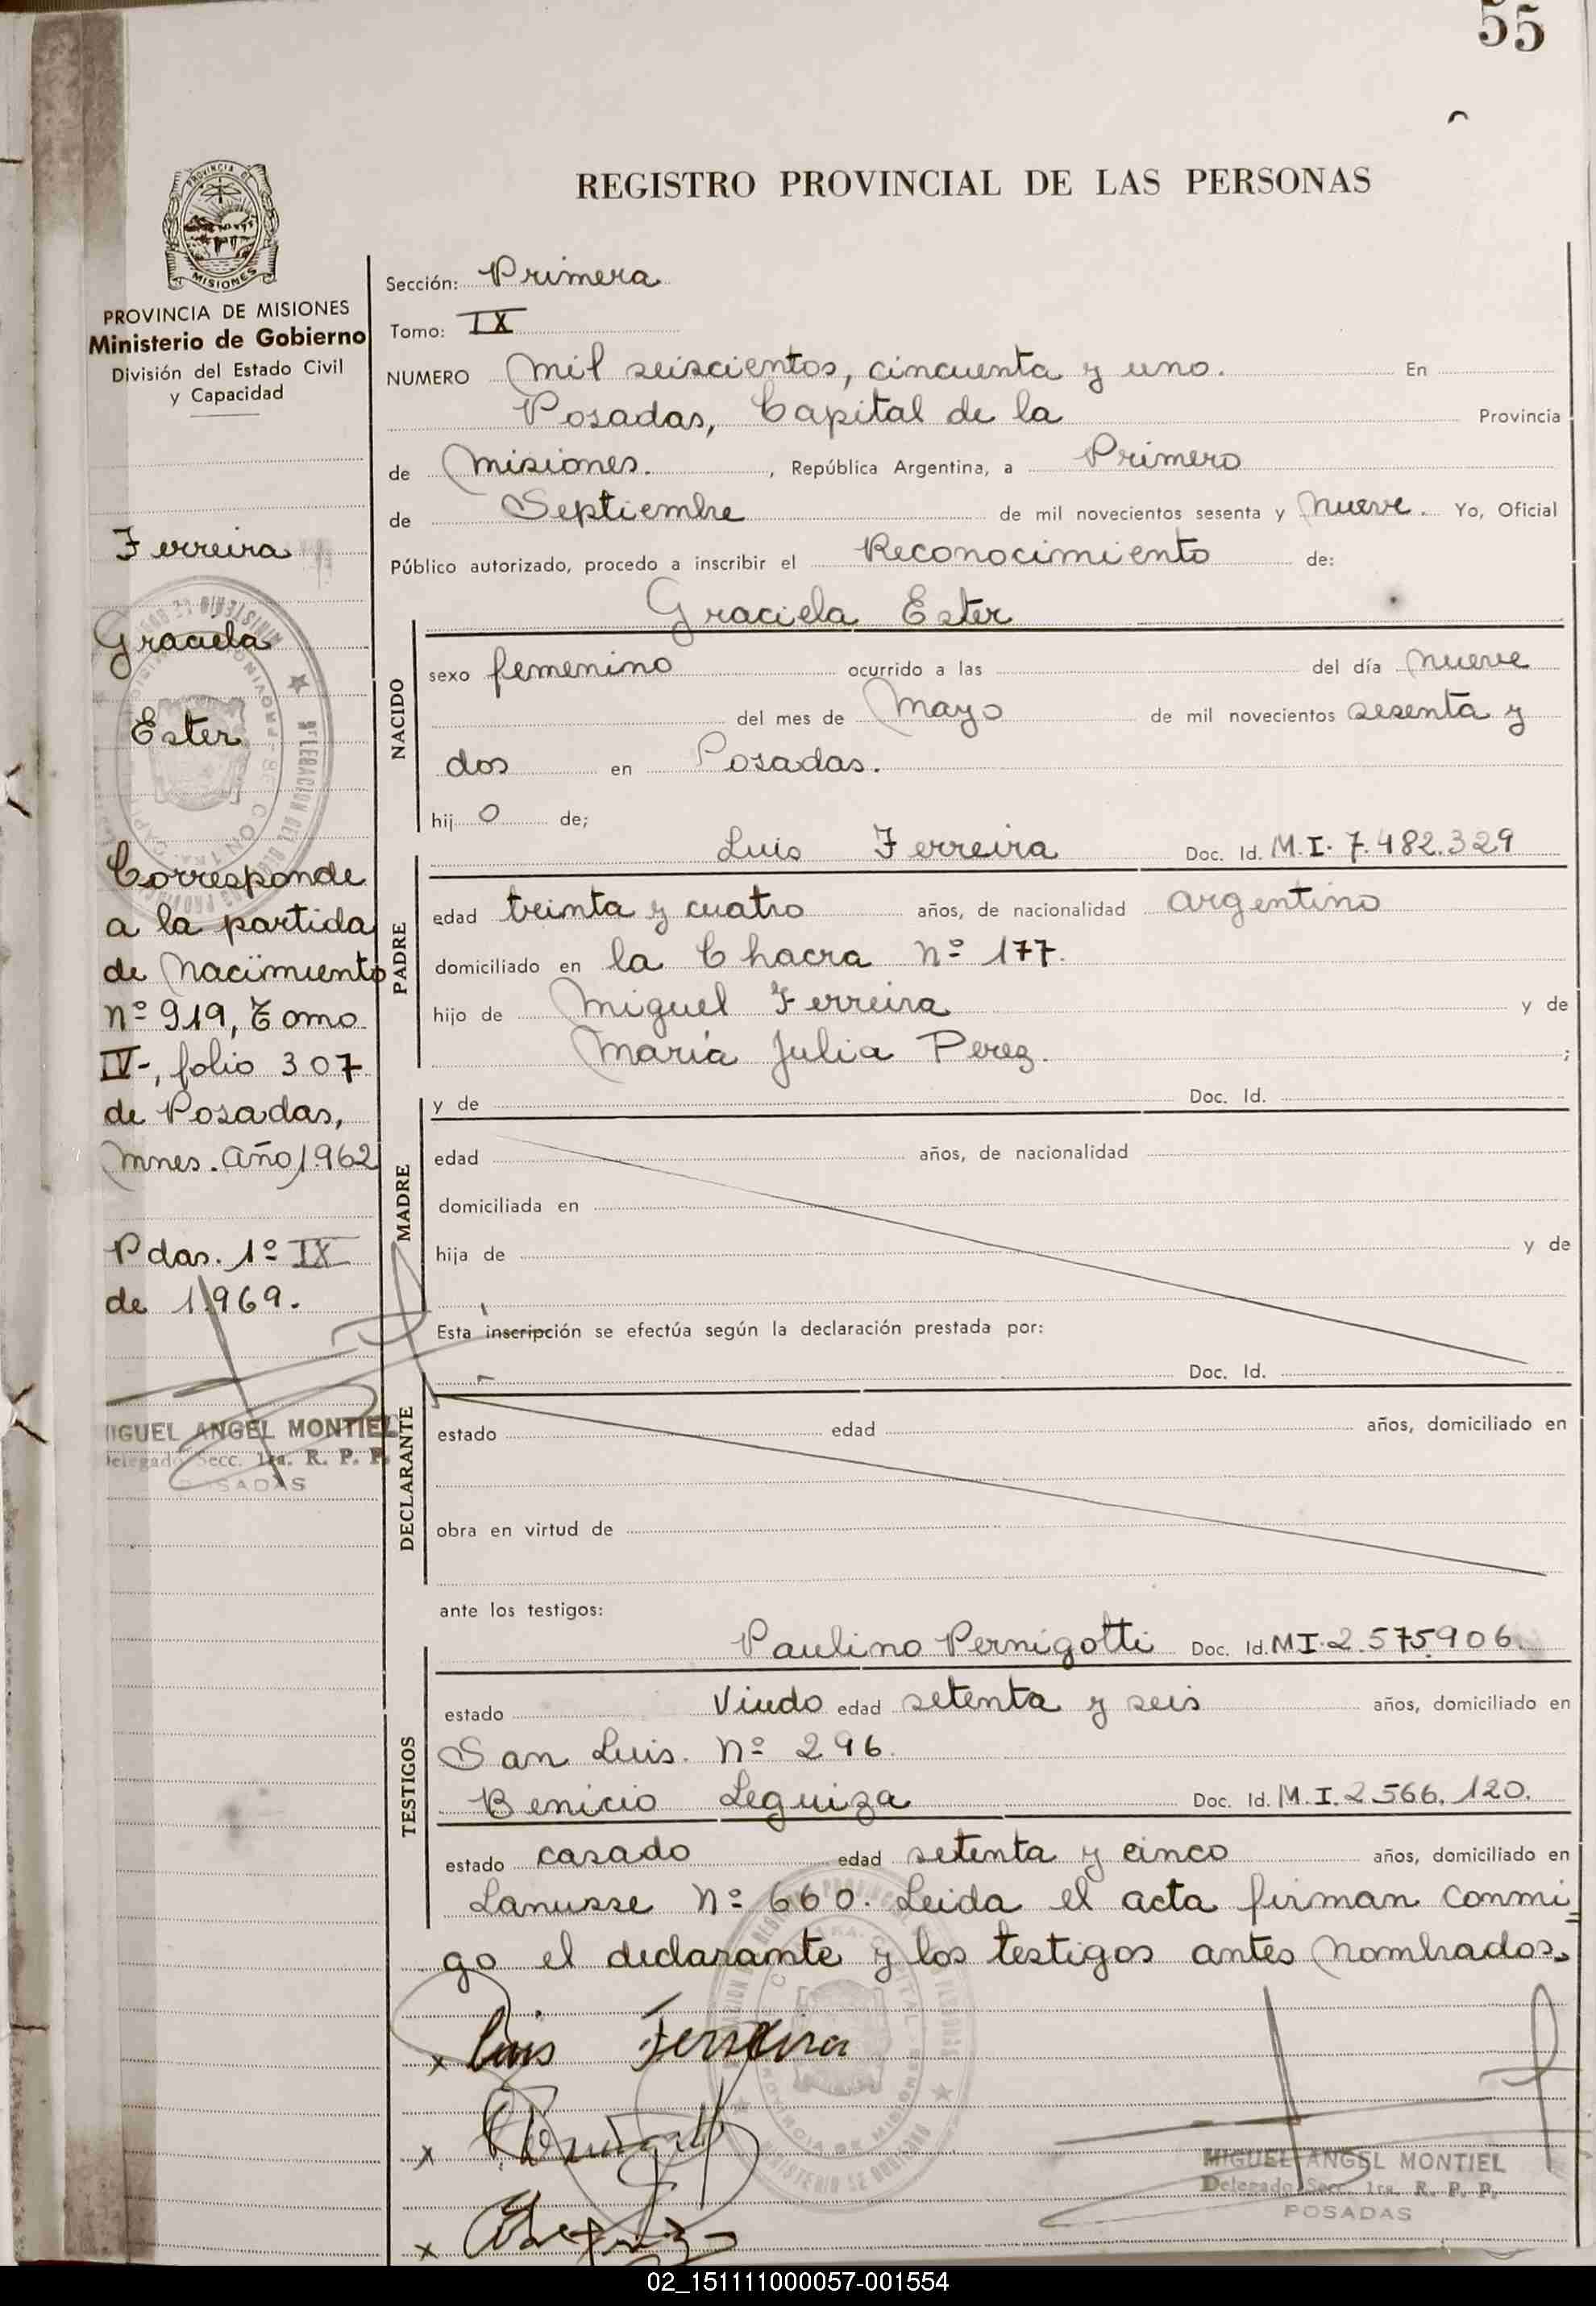 55
REGISTRO PROVINCIAL DE LAS PERSONAS
PROVINCIA DE MISIONES
Ministerio de Gobierno
División del Estado Civil
y Capacidad
Ferreira
Graciela
Ester
Corresponde
a la partida
de Nacimiento
nº 919, Tomo
IV-, folio 307
de Posadas,
Mnes. Año 1.962
Pdas. 1º IX
de 1.969.
IGUEL ANGEL MONTIEL
Delegado Secc. 1ra. R. P. P.
SADAS
Sección: Primera
Tomo: IX
NUMERO Mil seiscientos, cincuenta y uno. En
Posadas, Capital de la Provincia
de Misiones. , República Argentina, a Primero
de Septiembre de mil novecientos sesenta y Nueve. Yo, Oficial
Público autorizado, procedo a inscribir el Reconocimiento de:
Graciela Ester
NACIDO
sexo femenino ocurrido a las del día Nueve
del mes de Mayo de mil novecientos sesenta y
dos en Posadas.
hij o de;
Luis Ferreira Doc. Id. M.I. 7.482.329
PADRE
edad treinta y cuatro años, de nacionalidad argentino
domiciliado en la Chacra Nº 177.
hijo de Miguel Ferreira y de
María Julia Perez. ;
MADRE
y de Doc. Id.
edad años, de nacionalidad
domiciliada en
hija de y de
Esta inscripción se efectúa según la declaración prestada por:
Doc. Id.
DECLARANTE
estado edad años, domiciliado en
obra en virtud de
ante los testigos:
Paulino Pernigotti Doc. Id. MI. 2.575.906.
TESTIGOS
estado Viudo edad setenta y seis años, domiciliado en
San Luis. Nº 296.
Benicio Leguiza Doc. Id. M.I. 2.566.120.
estado casado edad setenta y cinco años, domiciliado en
Lanusse Nº 660. Leida el acta firman conmi=
go el declarante y los testigos antes nombrados.
x Luis Ferreira
x
x
MIGUEL ANGEL MONTIEL
Delegado Secc. 1ra. R. P. P.
POSADAS
02_151111000057-001554